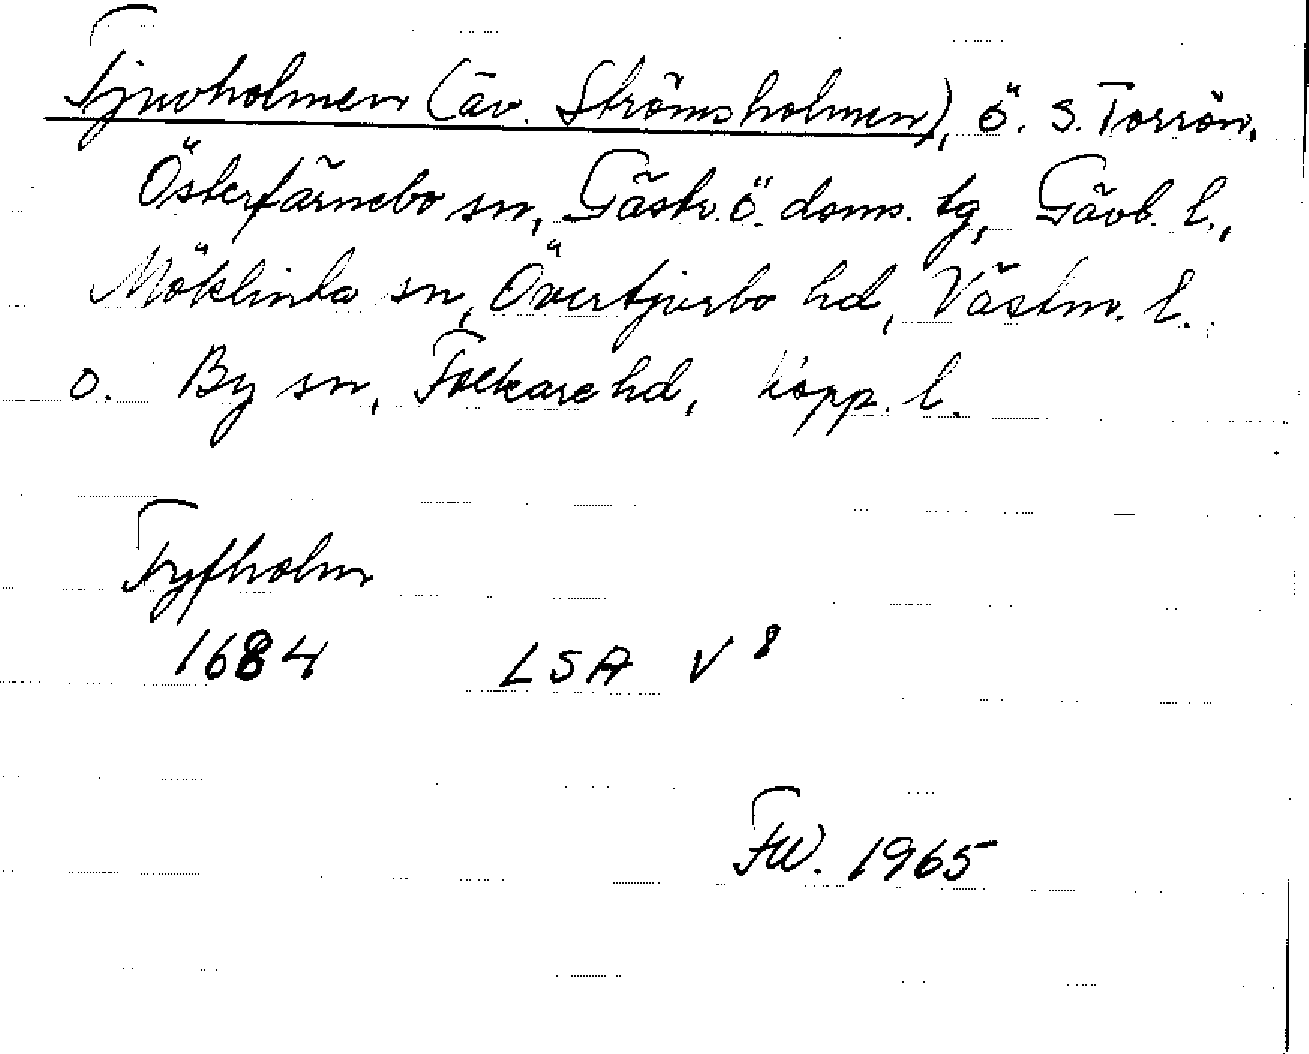 Fjuvholmen (äv. Strömsholmen), ö. S. Torrön,
Österfärnebo sn, Gästr. ö. doms. tg, Gävb. l.,
Möklinta sn, Övertjurbo hd, Västm. l.
o. By sn, Folkare hd, Kopp. l.
Fyfholm
1684 LSA V 8
FW. 1965